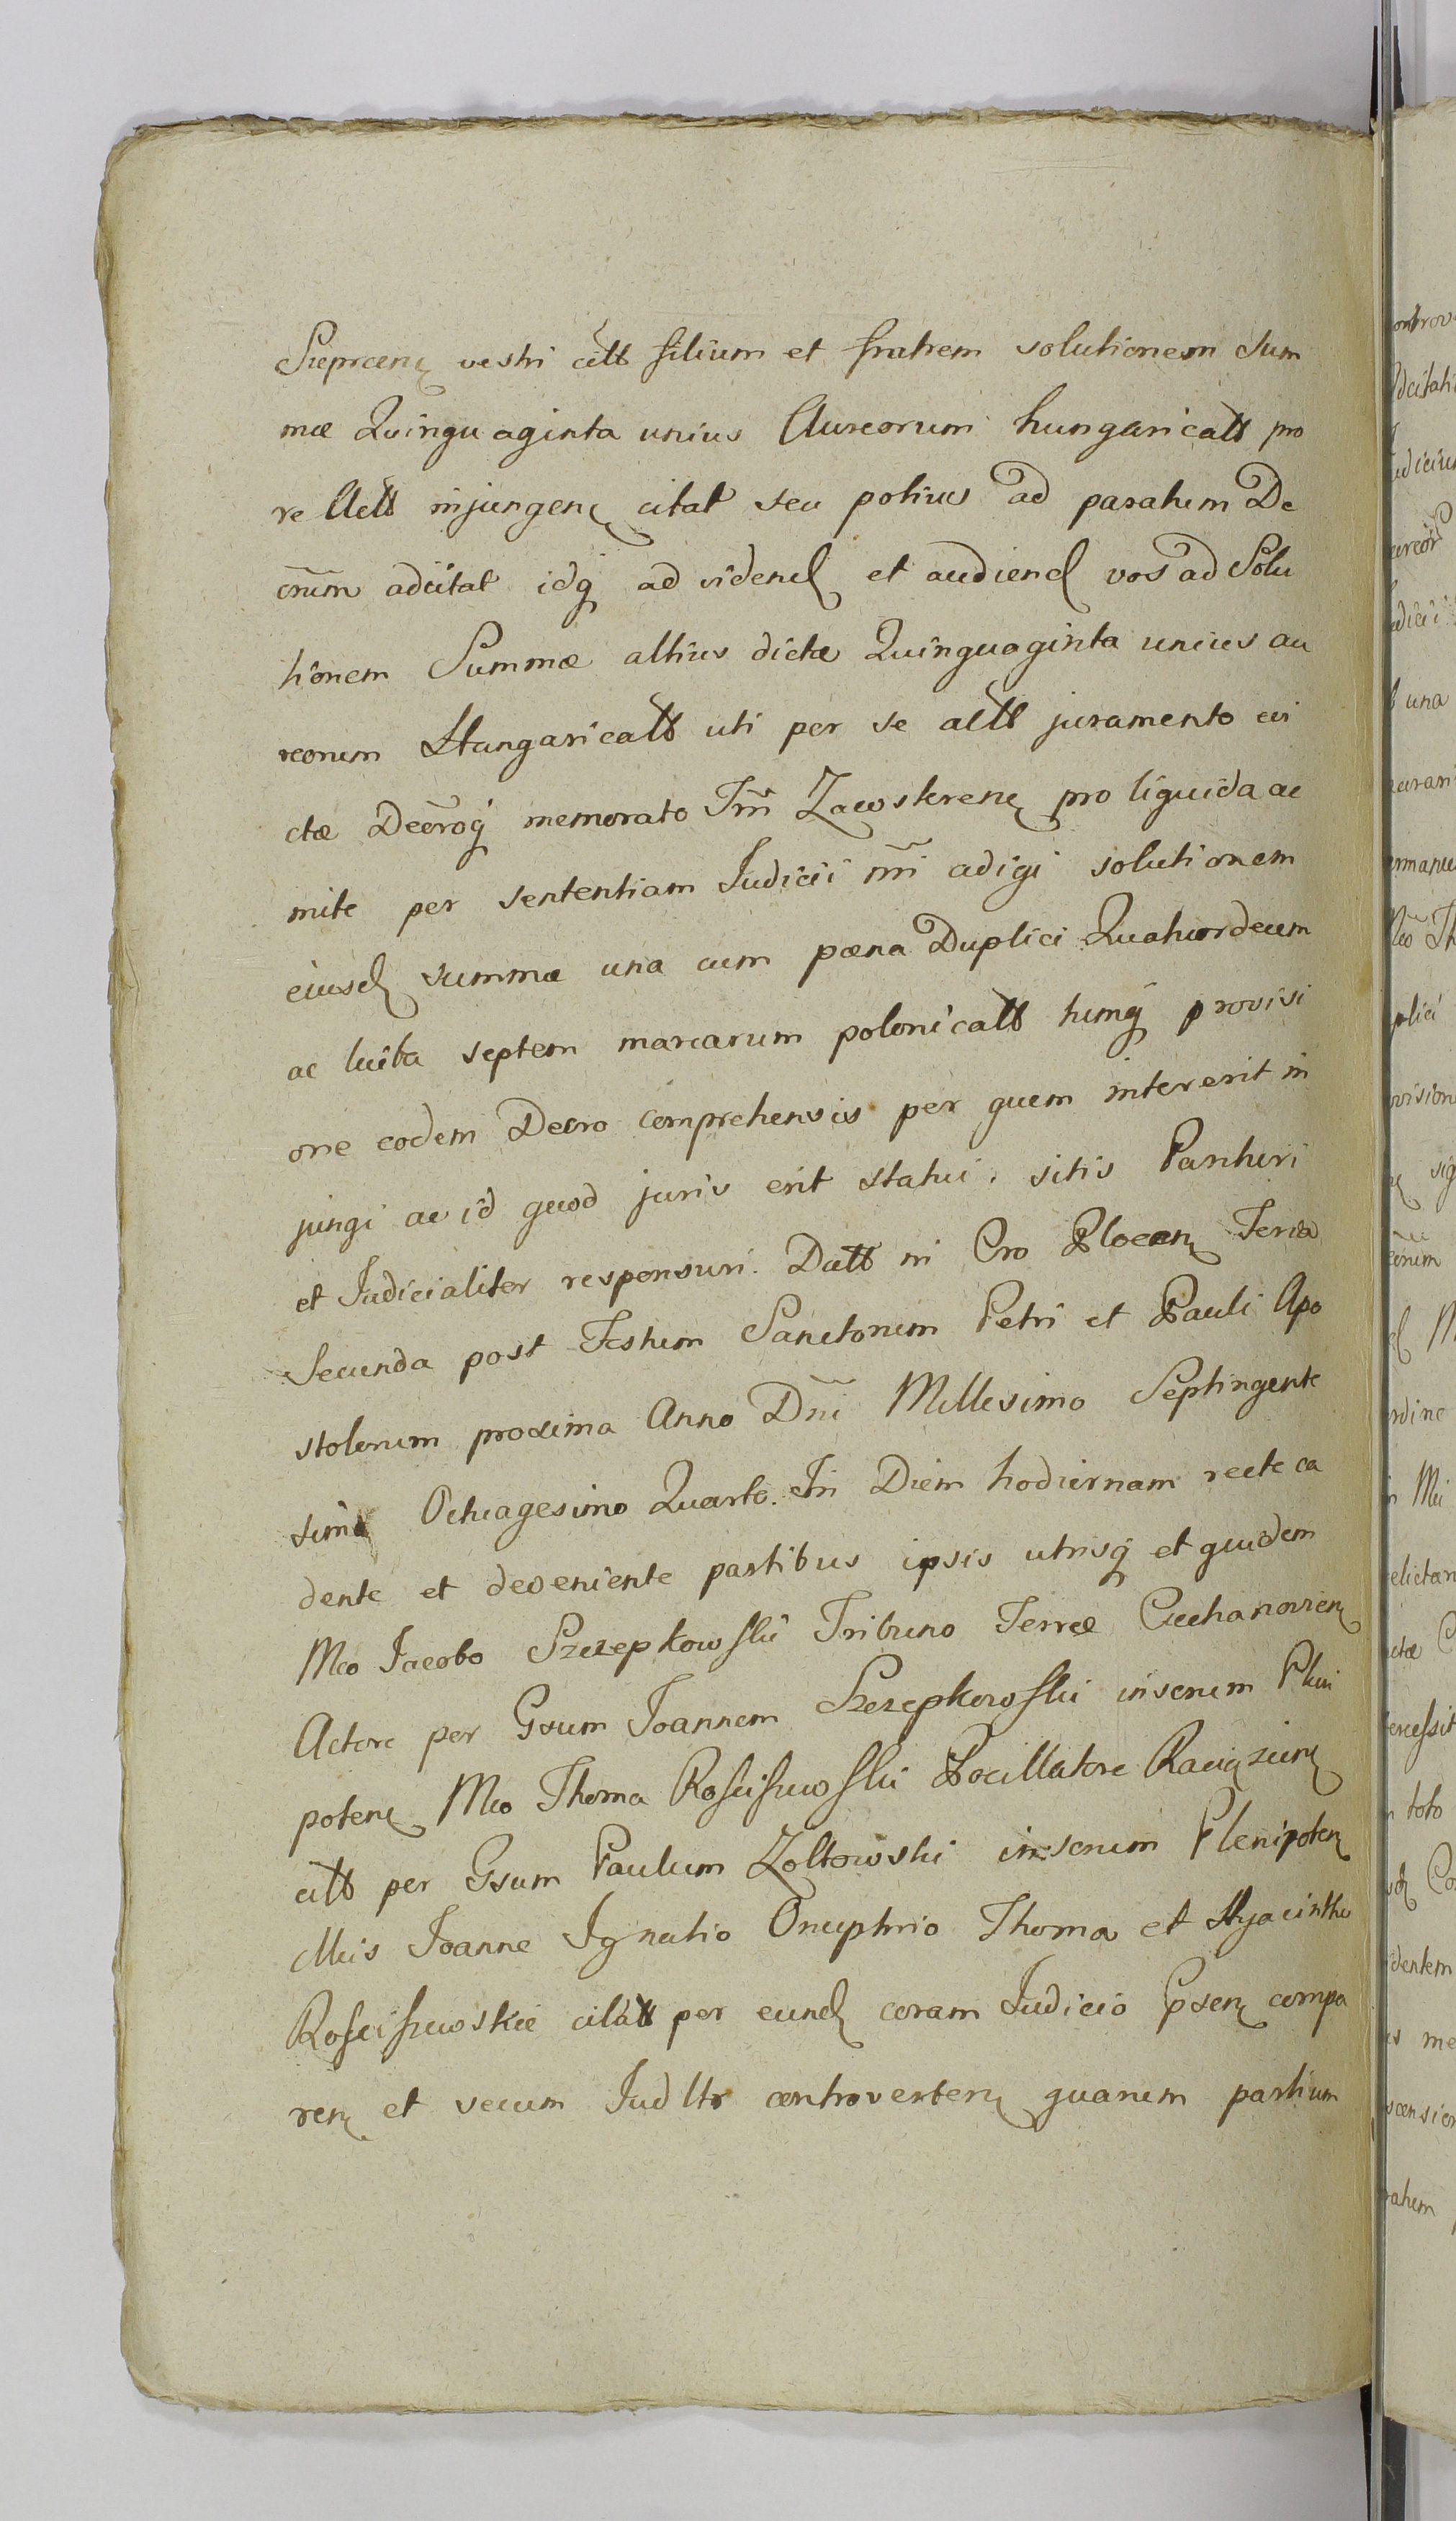 Sieprcen vestri citt filium et fratrem solutionem Sum
mæ Quinquaginta unius Aureorum hungaricatt pro
re Actt injungen citat seu potius ad paratum De
crũm adcitat idq ad vidend et audiend vos ad Solu
tionem Summæ altius dictæ Quinquaginta unius au
reorum Hungaricatt uti per se actt juramento evi
ctæ Decroq memorato Trri Zawskren pro liquida ac
mite per sententiam Judicii nri adigi solutionem
eiusd summæ una cum pœna Duplici Quatuordecim
ac luita septem marcarum polonicatt humq provisi
one eodem Decro comprehensis per quem intererit in
jungi ac id quod juris erit statui. sitis Parituri
et Judicialiter responsuri. Datt in Cro Plocen Feria
Secunda post Festum Sanctorum Petri et Pauli Apo
stolorum proxima Anno Dni Millesimo Septingente
simo Octuagesimo Quarto. In Diem hodiernam recte ca
dente et deveniente partibus ipsis utrisq et quidem
Mco Jacobo Szczepkowski Tribuno Terræ Ciechanovien
Actore per Gsum Joannem Szczepkowski insenum Pleni
poten Mco Thoma Rosciszewski Pocillatore Raciązien
citt per Gsum Paulum Zoltowski insenum Plenipoten
Mcis Joanne Ignatio Onuphrio Thoma et Hyacintho
Rosciszewskie citatt per eund coram Judicio Psen compa
ren et secum Judltr controverten quarum partium